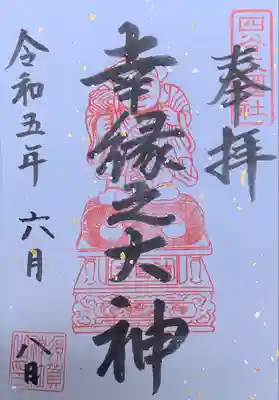 奉拝
幸縁之大神
令和五年 六月 八日